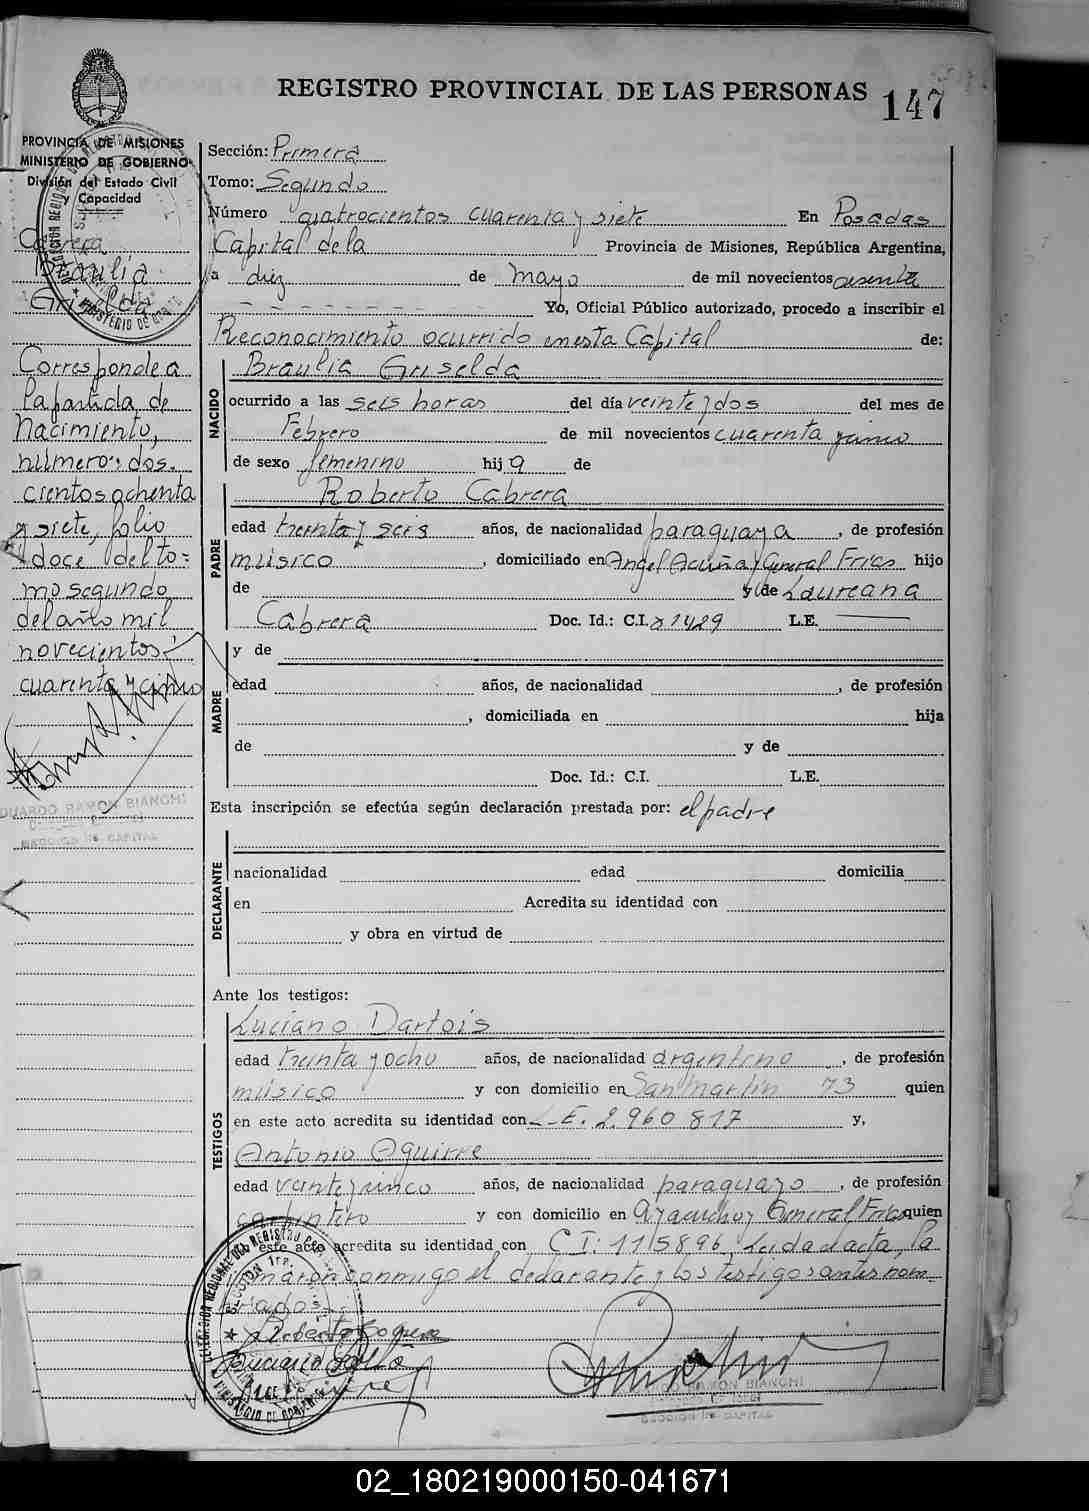 REGISTRO PROVINCIAL DE LAS PERSONAS
147
PROVINCIA DE MISIONES
MINISTERIO DE GOBIERNO
División del Estado Civil
y Capacidad
Cabrera
Braulia
Griselda
Corresponde a
la partida de
Nacimiento,
número: dos.
cientos ochenta
y siete, folio
doce del to=
mo segundo
del año mil
novecientos
cuarenta y cinco
EDUARDO RAMON BIANCHI
SECCION 1ª CAPITAL
Sección: Primera
Tomo: Segundo
Número cuatrocientos cuarenta y siete En Posadas
Capital de la Provincia de Misiones, República Argentina,
a diez de mayo de mil novecientos sesenta
Yo, Oficial Público autorizado, procedo a inscribir el
Reconocimiento ocurrido en esta Capital de:
NACIDO
Braulia Griselda
ocurrido a las seis horas del día veinte y dos del mes de
Febrero de mil novecientos cuarenta y cinco
de sexo femenino hija de
PADRE
Roberto Cabrera
edad treinta y seis años, de nacionalidad paraguaya, de profesión
músico, domiciliado en Angel Acuña y General Frias hijo
de y de Laureana
Cabrera Doc. Id.: C.I. 81429 L.E.
MADRE
y de
edad años, de nacionalidad , de profesión
, domiciliada en hija
de y de
Doc. Id.: C.I. L.E.
Esta inscripción se efectúa según declaración prestada por: el padre
DECLARANTE
nacionalidad edad domicilia
en Acredita su identidad con
y obra en virtud de
Ante los testigos:
TESTIGOS
Luciano Dartois
edad treinta y ocho años, de nacionalidad argentino, de profesión
músico y con domicilio en San Martín 73 quien
en este acto acredita su identidad con L.E. 2.960.817 y,
Antonio Aguirre
edad veinte y cinco años, de nacionalidad paraguayo, de profesión
carpintero y con domicilio en Ayacucho y General Frias quien
en este acto acredita su identidad con C.I: 115896, Leida el acta, la
firmaron conmigo el declarante y los testigos antes nom-
brados.
RAMON BIANCHI
SECCION 1ª CAPITAL
02_180219000150-041671